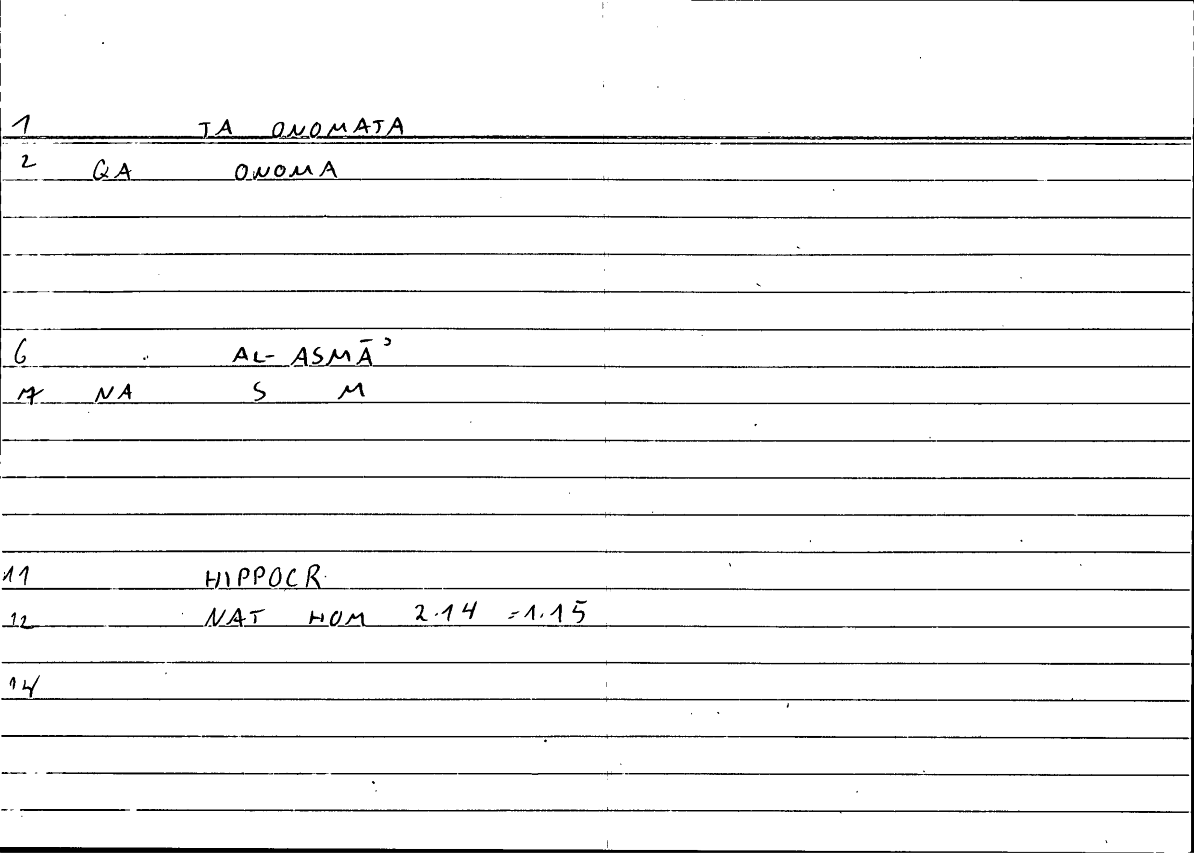 1 TA ONOMATA
2 QA ONOMA
6 AL-ASMĀʾ
7 NA S M
11 HIPPOCR.
12 NAT HOM 2.14 =1.15
14